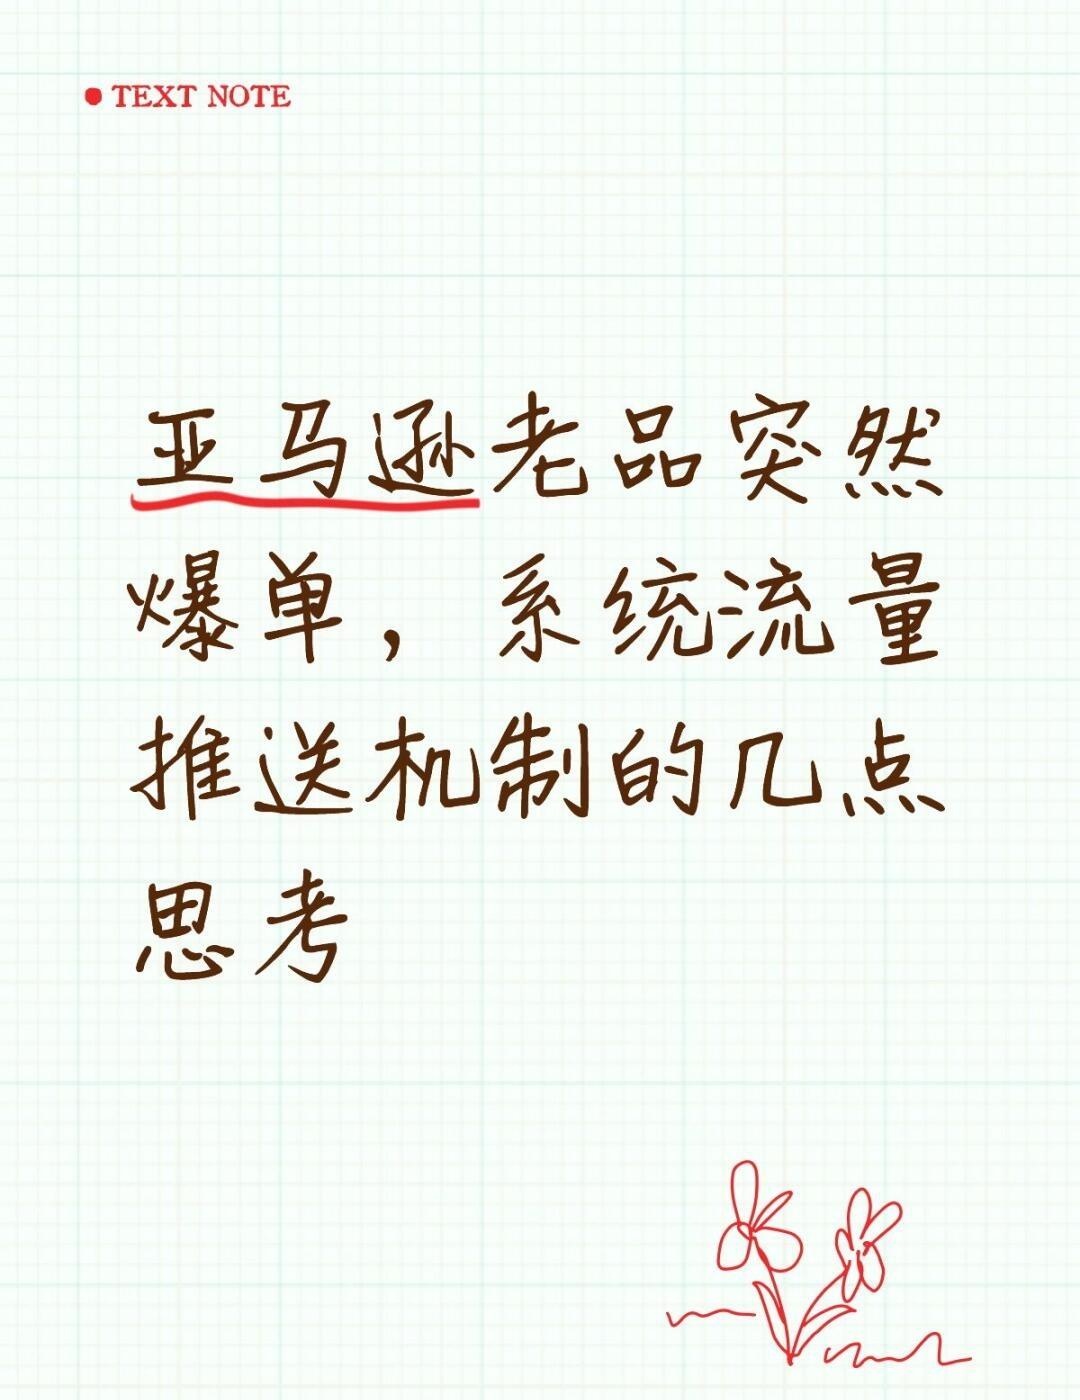 TEXT NOTE
亚马逊老品突然
爆单，系统流量
推送机制的几点
思考